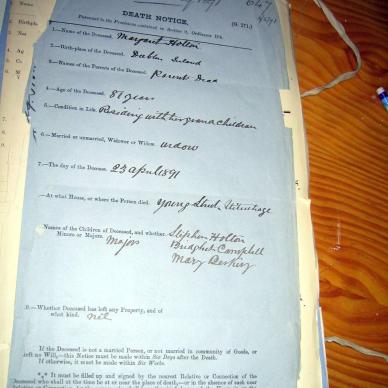 DEATH NOTICE.
Pursuant to the Provisions contained in Section 9, Ordinance 104.
1.—Name of the Deceased. Margaret Holton
2.—Birthplace of the Deceased. Dublin Island
3.—Names of the Parents of the Deceased. Parents Dead
4.—Age of the Deceased. 87 years
5.—Condition in Life. Residing with her grand children
6.—Married or unmarried, Widower or Widow. widow
7.—The day of the Decease. 23 April 1891
—At what House, or where the Person died. Young Street Uitenhage
Names of the Children of Deceased, and whether Stephen Holton
Minors or Majors. Majors Bridghet Campbell
Mary
9.—Whether Deceased has left any Property, and of
what kind. nil
If the Deceased is not a married Person, or not married in community of Goods, or
left no Will,—this Notice must be made within Six Days after the Death.
If otherwise, it must be made within Six Weeks.
*** It must be filled up and signed by the nearest Relative or Connection of the
Deceased who shall at the time be at or near the place of death,—or in the absence of such near